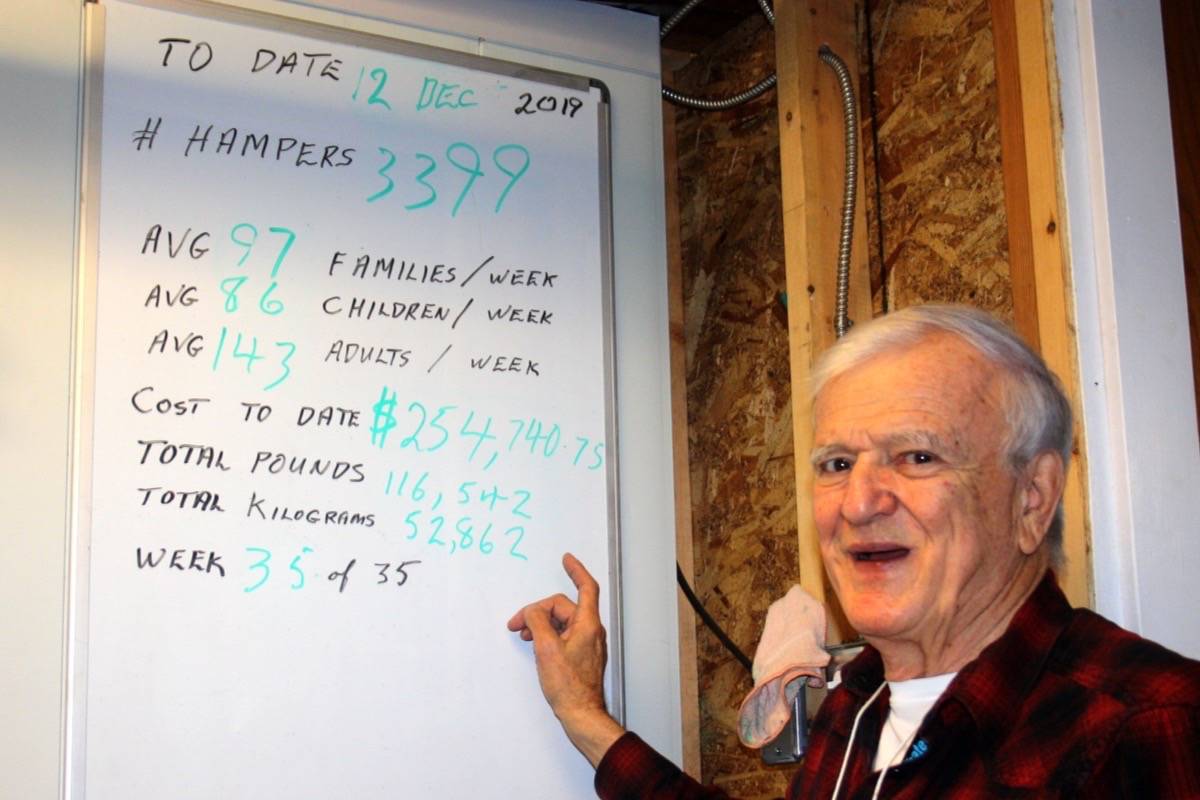 TO DATE 12 DEC 2019
# HAMPERS 3399
AVG 97 FAMILIES/WEEK
AVG 86 CHILDREN/WEEK
AVG 143 ADULTS / WEEK
COST TO DATE $254,740.75
TOTAL POUNDS 116,542
TOTAL KILOGRAMS 52,862
WEEK 35 of 35